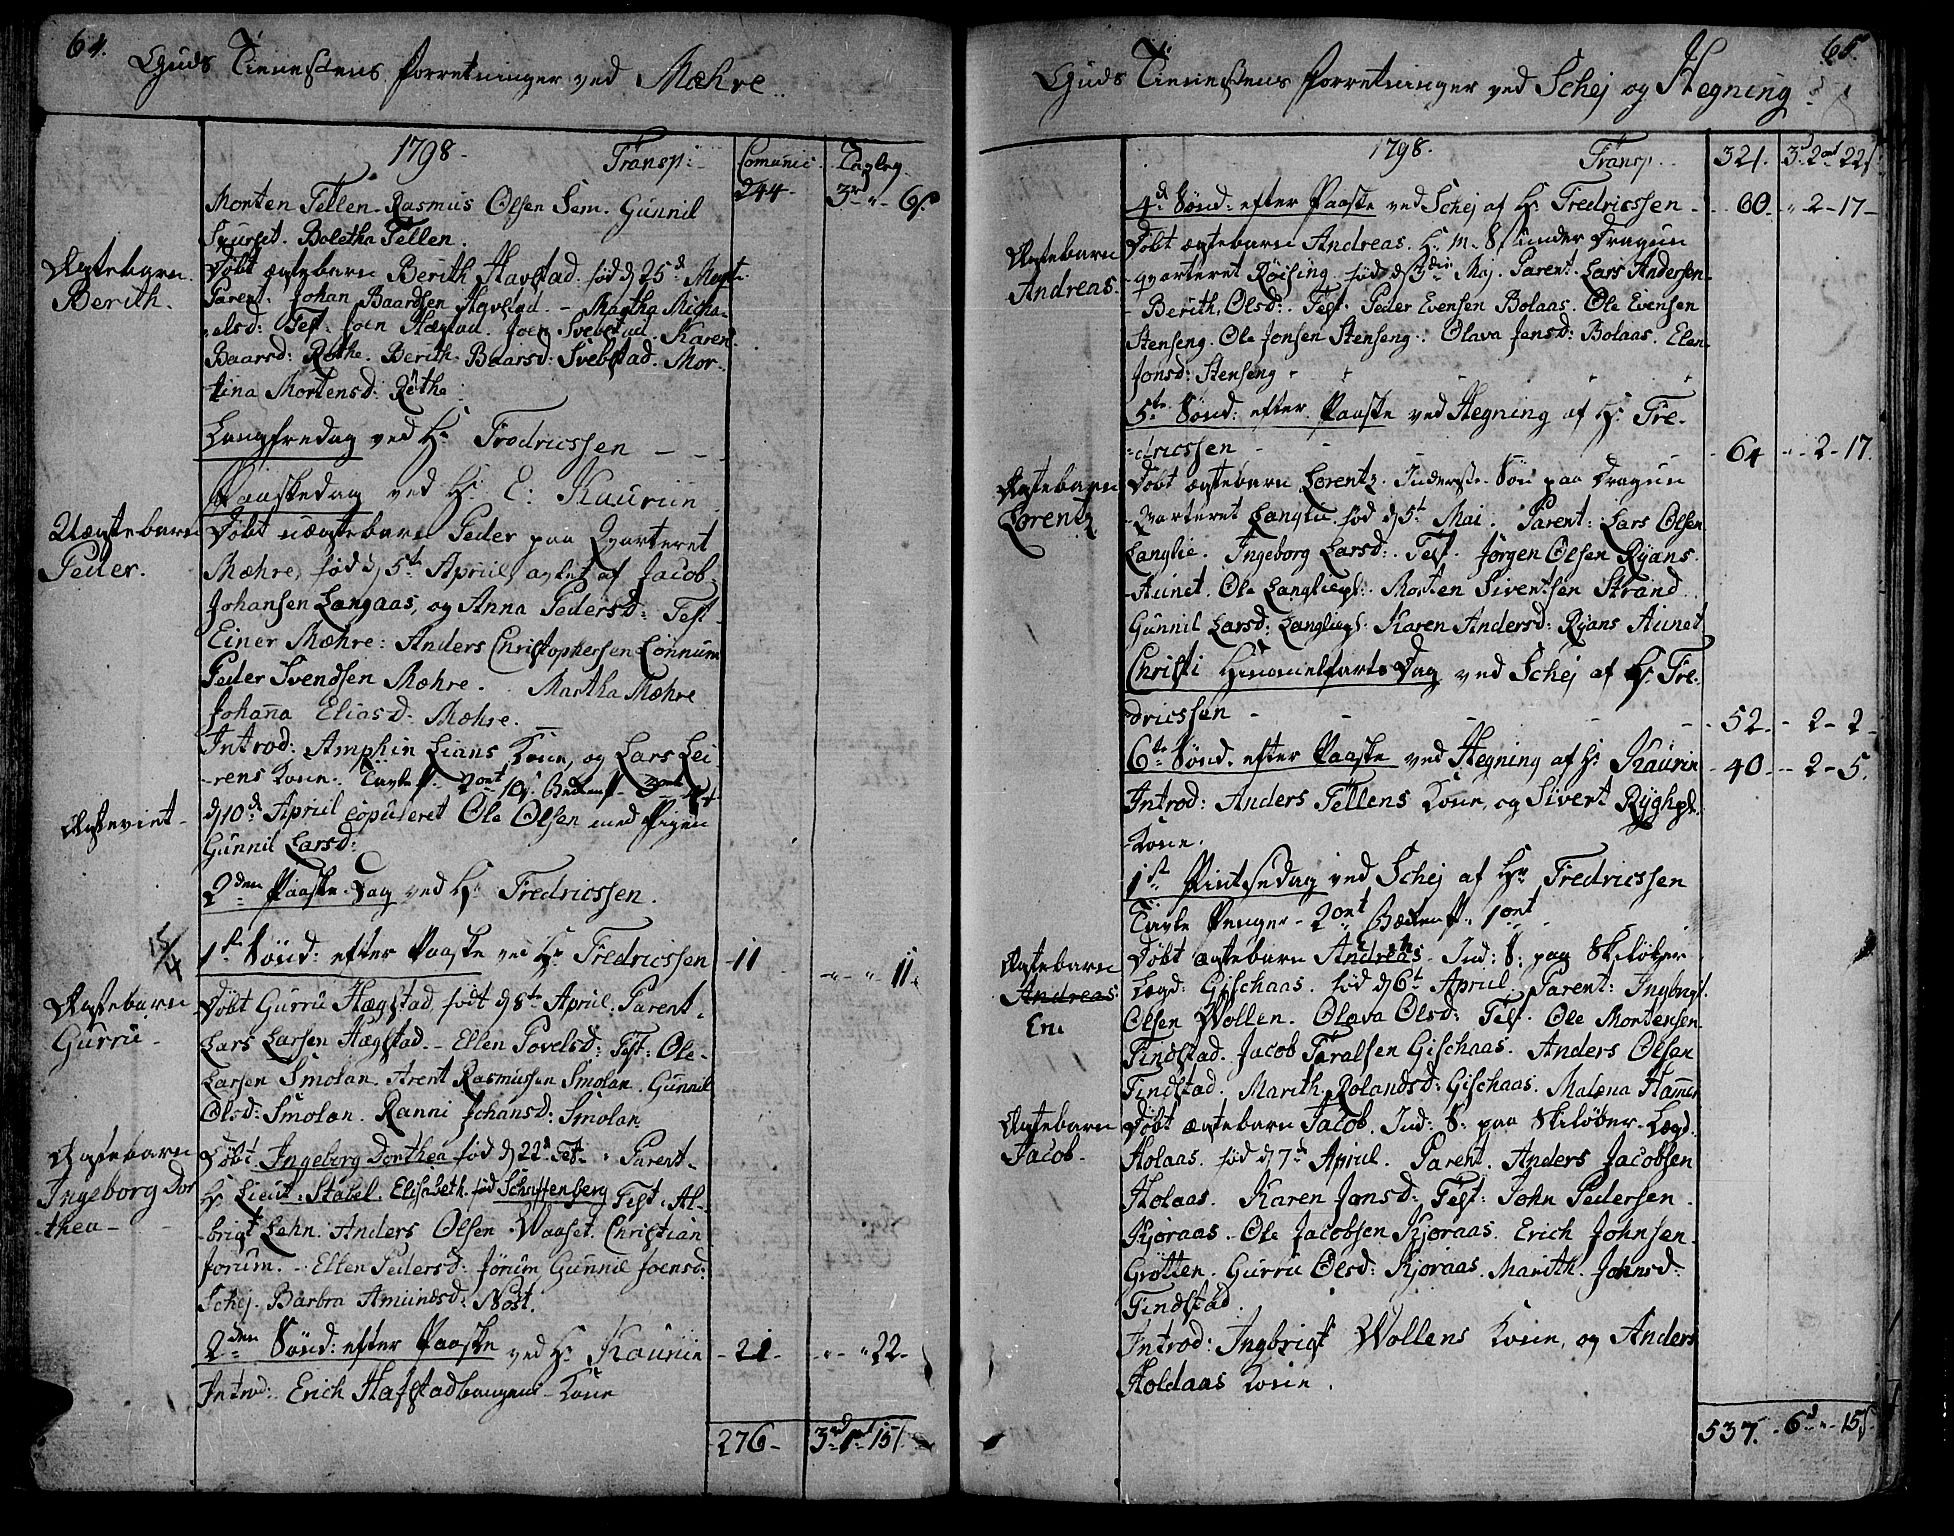 64.
Guds Tienestens Forretninger ved Mæhre
1798 - Transp: Comunic. Tavlep.
244 - 3 rd " - 6 s
Morten Tellen. Rasmus Olsen Sem. Gunnil
Skurset. Boletha Tellen.
Ægtebarn
Berith.
Døbt ægtebarn Berith Havstad. fød d 25d Mart.
Parent. Johan Baardsen Havstad. - Martha Micha-
elsd: Test. Joen Hægstad. Joen Svebstad. Karen
Baarsd: Røthe. Berith Baarsd: Svebstad. Mor-
tina Mortensd: Røthe
Langfredag ved Hr Fredricssen - - -
Paaskedag ved Hr E: Kaurin
Uægtebarn
Peder.
Døbt uægtebarn Peder paa Qvarteret
Mæhre, fød d 5t April, avlet af Jacob
Johansen Langaas, og Anna Pedersd: Test
Einer Mæhre: Anders Christophersen Lønnum
Peder Svendsen Mæhre. Martha Mæhre
Johanna Eliasd. Mæhre.
Introd: Amphin Lians Kone, og Lars Lei-
rens Kone. Tavle P. 2 ort 10 s.
Ægteviet -
d 10d April copuleret Ole Olsen med Pigen
Gunnil Larsd:
2den Paaske-Dag ved Hr Fredricssen.
15/4
1st Sønd: efter Paaske ved Hr Fredricssen - 11 - " - " 11.
Ægtebarn
Gurru -
Døbt Gurru Hægstad, født d 8t April. Parent.
Lars Larsen Hægstad. - Ellen Povelsd: Test: Ole
Larsen Smolan. Arent Rasmussen Smolan. Gunnil
Olsd: Smolan. Ranni Johansd: Smolan
Ægtebarn
Ingeborg Dor
thea -
Døbt Ingeborg Dorthea fød d 22d Feb. Parent.
Hr Lieut: Stabel. Elisabeth fød Schaftenberg Test. Al-
brigt Lehn. Anders Olsen Waaset. Christian
Jørum. - Ellen Pedersd: Jørum Gunnil Joensd:
Schej. Barbra Amundsd: Nøst.
2den Sønd: efter Paaske ved Hr Kaurin - 21 - " - " 22 -
Introd: Erich Hafstadvangens Kone
276 - 3 rd 1 ort 15 s.
65.
Guds Tienestens Forretninger ved Schej og Hegning
1798. Transp. 321. 3 d 2 ort 22 s.
4d Sønd: efter Paaske ved Schej af Hr Fredricssen - 60 - " 2 - 17 -
Ægtebarn
Andreas.
Døbt ægtebarn Andreas. H. M. S. under Dragun
qvarteret Røising fød d 3die Maj. Parent. Lars Andersen
- Berith Olsd: Test. Peder Evensen Bolaas. Ole Evensen
Stenseng. Ole Jonsen Stenseng. Olava Jensd: Bolaas. Elen
Jonsd: Stenseng -
5te Sønd: efter Paaske ved Hegning af Hr Fre-
dricssen - 64 - " - 2 - 17.
Ægtebarn
Lorentz
Døbt ægtebarn Lorentz. Inderste Søn paa Dragun
Qvarteret Langlie fød d 5t Mai. Parent: Lars Olsen
Langlie. Ingeborg Larsd: Test. Jørgen Olsen Ryans.
Aunet. Ole Langliepl: Morten Sivertsen Strand
Gunnil Larsd: Langliepl. Karen Andersd: Ryans Aunet
Christi Himmelfarts Dag ved Schej af Hr Fre-
dricssen - 52 - - 2 - 2 -
6te Sønd. efter Paaske ved Hegning af Hr Kaurin - 40 - - 2 - 5.
Introd: Anders Tellens Kone, og Sivert Ryghpl:
Kone.
1st Pintsedag ved Schej af Hr Fredricssen
Tavle Penger - 2 ort 1 ort
Ægtebarn
Andreas
Em
Døbt ægtebarn Andreas. Ind: S: paa Skiløber
Lægd: Gischaas. fød d 6t April. Parent: Ingbrigt
Olsen Wollen. Olava Olsd: Test. Ole Mortensen
Findstad. Jacob Taralsen Gischaas. Anders Olsen
Findstad. Marith Rolandsd: Gischaas. Malena Hammer
Ægtebarn
Jacob.
Døbt ægtebarn Jacob. Ind: S: paa Skiløber Lægd.
Holaas. fød d 7d April. Parent. Anders Jacobsen
Holaas. Karen Jonsd: Test: John Pedersen.
Kjøraas. Ole Jacobsen Kjøraas. Erich Johnsen
Grøtten. Gurru Olsd: Kjøraas. Marith. Johnsd:
Findstad.
Introd: Ingbrigt Wollens Kone, og Anders
Holdaas Kone.
537. - 6 d " - 15 s.